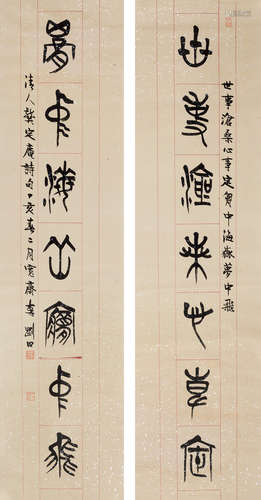 世事滄桑心事定胸中海嶽夢中飛
世事滄桑心事定
胸中海嶽夢中飛
清人龔定庵詩句丁亥春二月寬齋李剛田